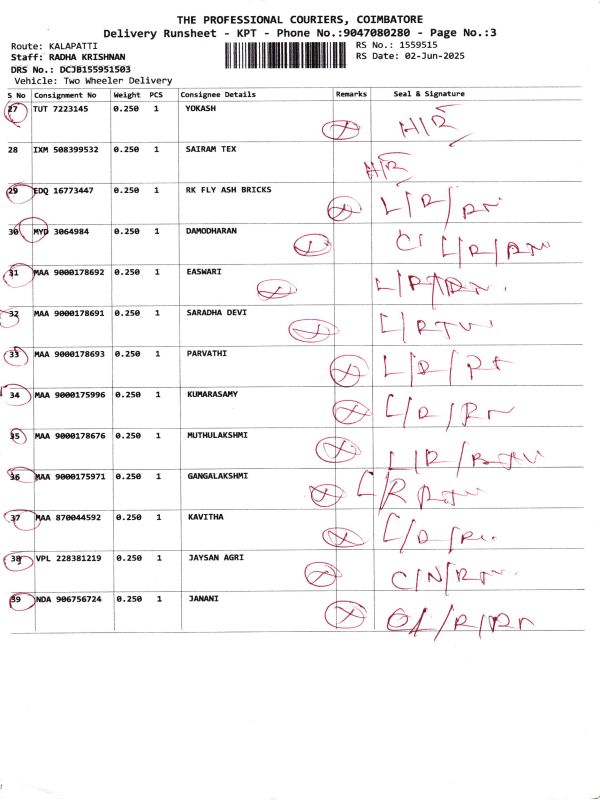 THE PROFESSIONAL COURIERS, COIMBATORE
Delivery Runsheet - KPT - Phone No.:9047080280 - Page No.:3
Route: KALAPATTI RS No.: 1559515
Staff: RADHA KRISHNAN RS Date: 02-Jun-2025
DRS No.: DCJB155951503
Vehicle: Two Wheeler Delivery
S No Consignment No Weight PCS Consignee Details Remarks Seal & Signature
27 TUT 7223145 0.250 1 YOKASH H/R
28 IXM 508399532 0.250 1 SAIRAM TEX H/R
29 EDQ 16773447 0.250 1 RK FLY ASH BRICKS L/R/RN
30 MYD 3064984 0.250 1 DAMODHARAN
31 MAA 9000178692 0.250 1 EASWARI
32 MAA 9000178691 0.250 1 SARADHA DEVI
33 MAA 9000178693 0.250 1 PARVATHI
34 MAA 9000175996 0.250 1 KUMARASAMY
35 MAA 9000178676 0.250 1 MUTHULAKSHMI
36 MAA 9000175971 0.250 1 GANGALAKSHMI
37 MAA 870044592 0.250 1 KAVITHA
38 VPL 228381219 0.250 1 JAYSAN AGRI
39 NDA 906756724 0.250 1 JANANI